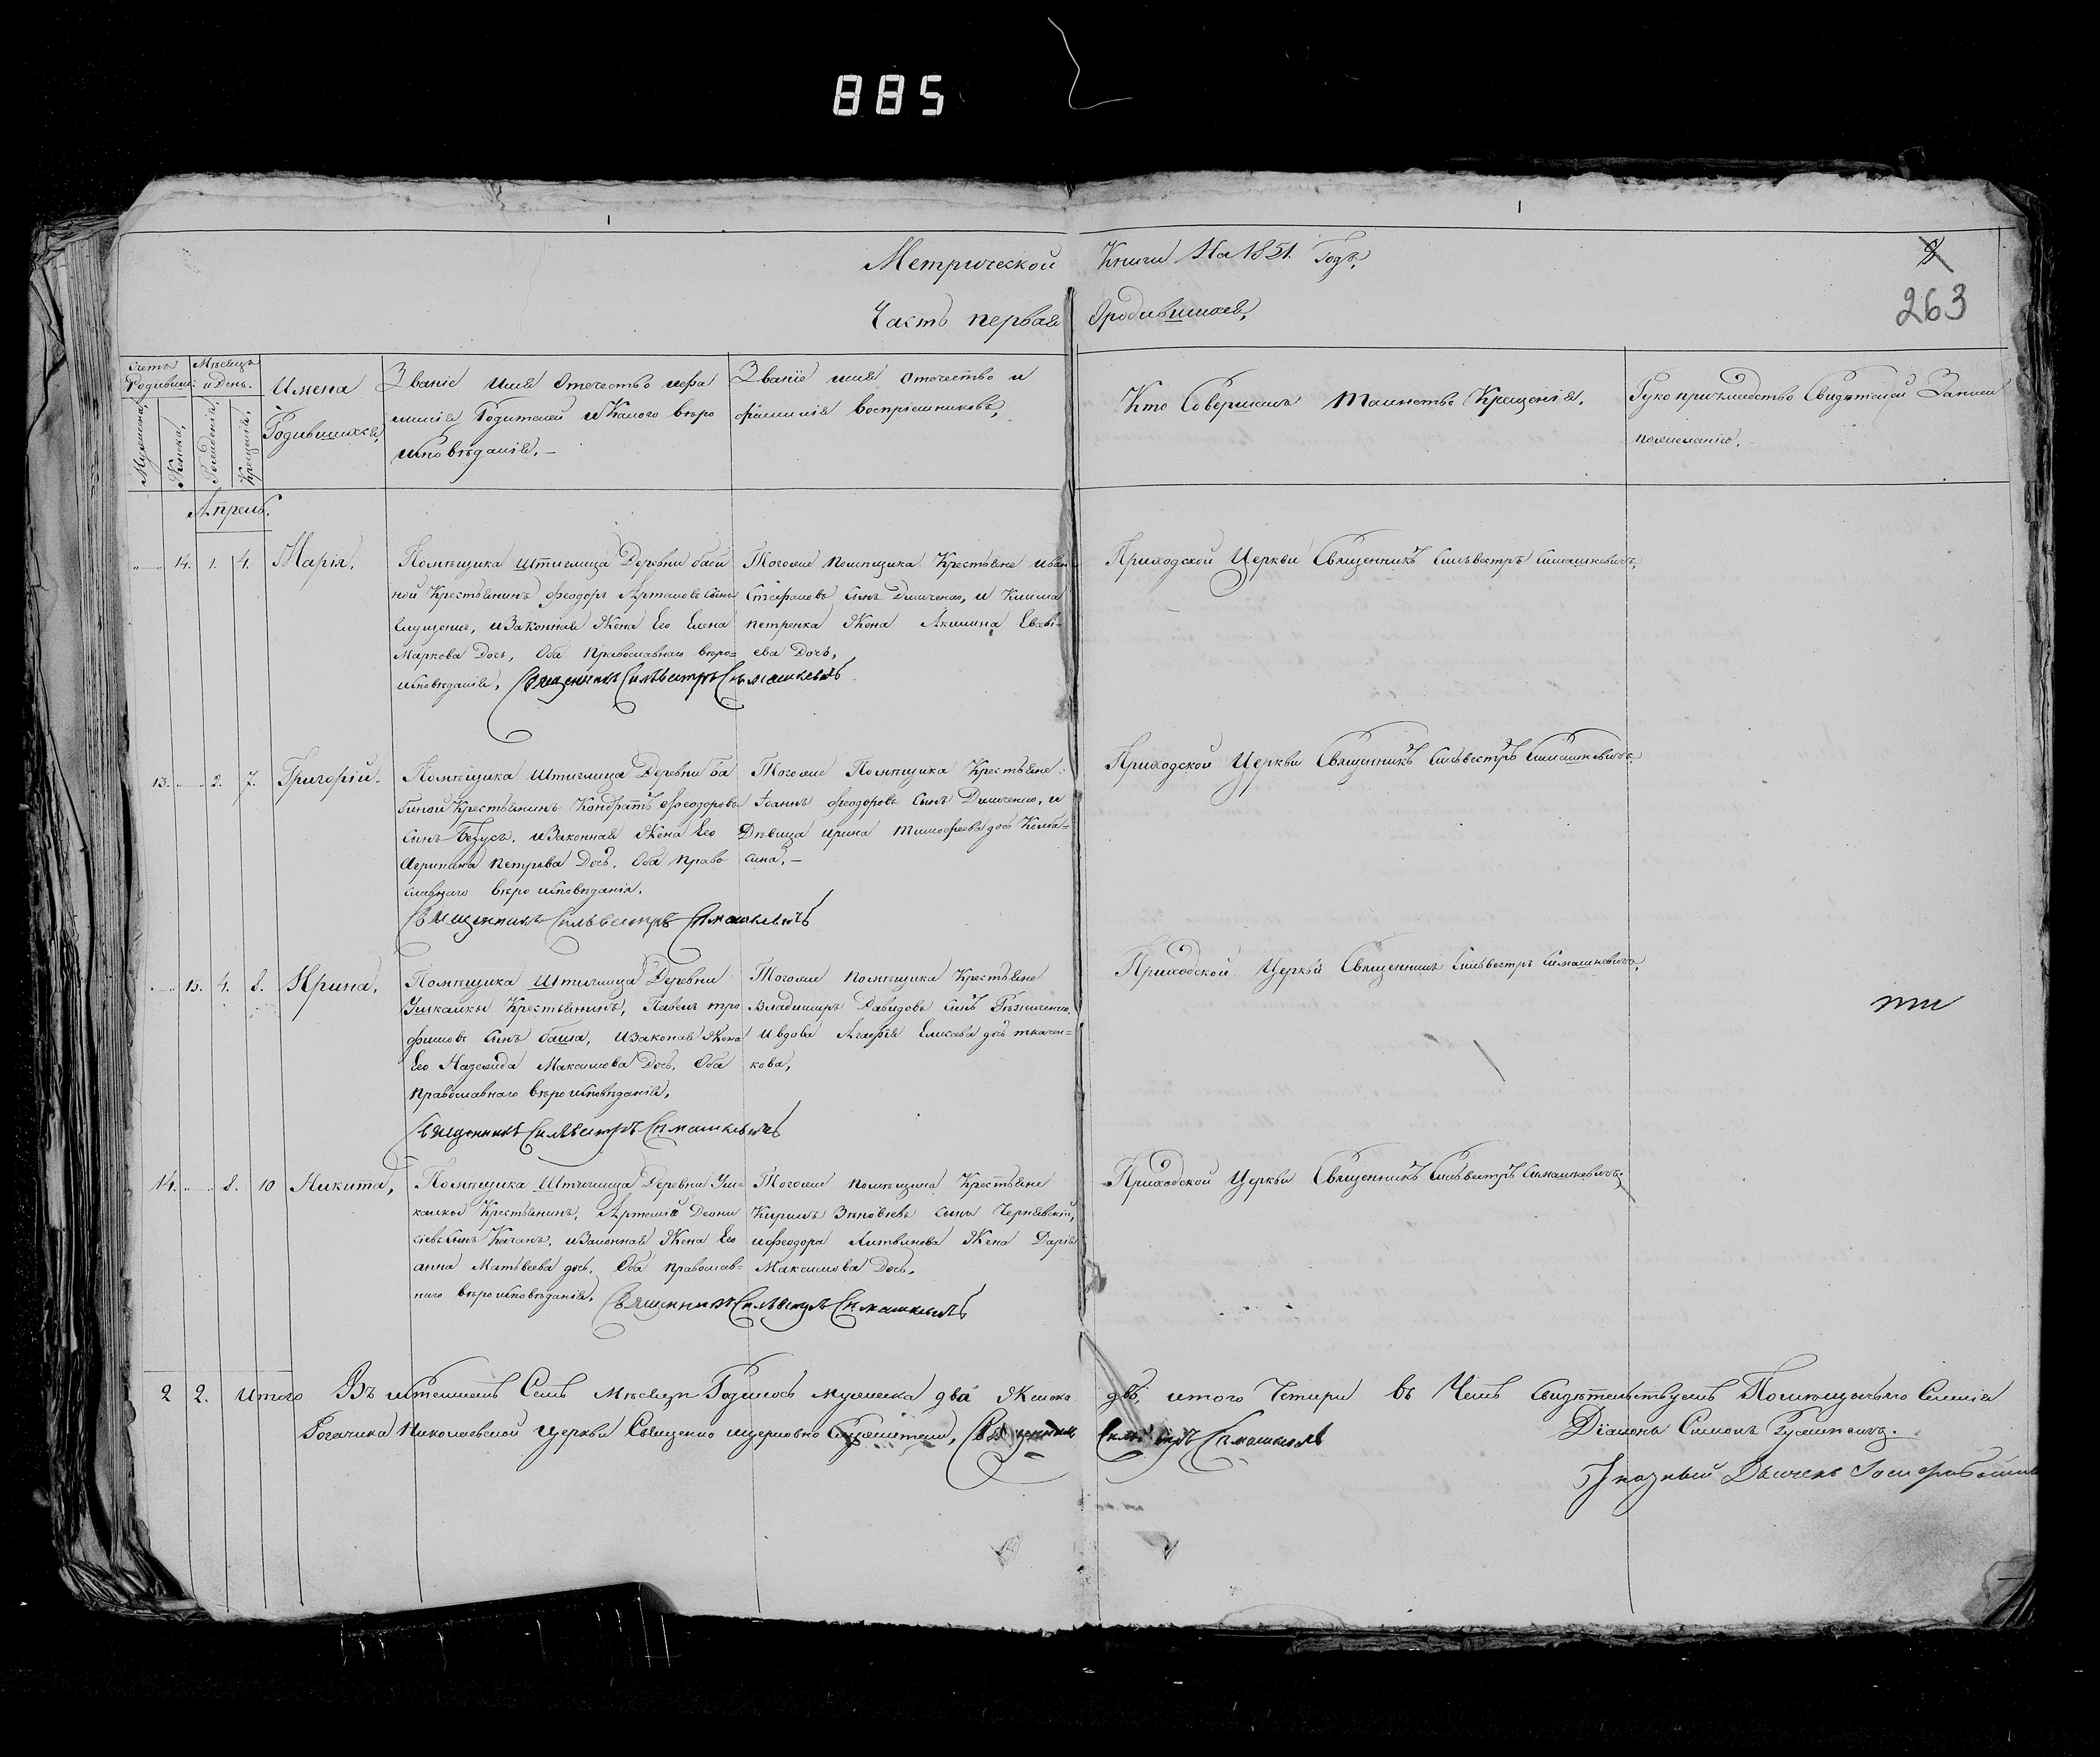 885
Метрической Книги На 1851. Годъ,
263
Часть перваяОродившихся,
Счетъ Родивших:
Мѣсяцъ и День.
Мужеска,
Женска,
Рожденія,
Крещенія,
Имена
Родившихся,
Званіе имя Отечество ифа
милія Родителей иКакого вѣро
исповѣданія. –
Званіе имя отечество и
фамилія Воспріемниковъ,
Кто Совершалъ Таинство Крещенія.
Рукоприкладство Свидѣтелей Записи
пожеланію.
Апрель.
14. 1. 4. Марія.
Помѣщика Штиглица Деревни баби
ной Крестьянинъ Феодоръ Артемовъ Сынъ
изаконная Жена Его Елена
Маркова Дочь, Оба Православнаго вѣро=
исповѣданія. Священникъ Сильвестръ Симашкевичъ
Тогоже помѣщика Крестьяне Иванъ
Стефановъ Сынъ Димченко, и Клима
петренка Жена Акилина Евсѣ=
ева Дочь,
Приходской Церкви Священникъ Сильвестръ Симашкевичъ,
13. 2. 7. Григорій.
Помѣщика Штиглица Деревни Ба
биной Крестьянинъ Кондратъ Феодоровъ
Сынъ Безусъ. изаконная Жена Его
Агрипина Петрова Дочь. Оба Право
славнаго вѣро исповѣданія.
Священникъ Сильвестръ Симашкевичъ
Тогоже Помѣщика Крестьяне
Іоаннъ Феодоровъ Сынъ Димченко, и
Дѣвица Ирина Тимофеева дочь Колба=
сина, –
Приходской Церкви Священникъ Сильвестръ Симашкевичъ
15. 4. 8. Ирина,
Помѣщика Штиглица Деревни
Ушкалки Крестьянинъ, Павелъ тро
фимовъ Сынъ баша, изаконая Жена
Его Надежда Максимова Дочь, Оба
Православнаго вѣроисповѣданія,
Священникъ Сильвестръ Симашкевичъ
Тогоже помѣщика Крестьяне
Владимиръ Давидовъ Сынъ
Ивдова Агафія Елисѣева дочь ткачен=
кова,
Приходской Церкви Священникъ Сильвестръ Симашкевичъ,
14. 8. 10 Никита,
Помѣщика Штиглица Деревни Уш=
калки Крестьянинъ, Артемій Деони
сіевъ Сынъ Качанъ, изаконная Жена Его
анна Матвѣева дочь. Оба православ=
наго вѣроисповѣданія. Священникъ Сильвестръ Симашкевичъ
Тогоже помѣщика Крестьяне
Кирилъ Зѣновіевъ сынъ Чернявскій,
ифеодора Литвинова Жена Дарія
Максимова Дочь,
Приходской Церкви Священникъ Сильвестръ Симашкевичъ,
2 2. Итого Въ Семъ Мѣсяцѣ Родилось мужеска два Женска двѣ, итого Четыри въ Чемъ Свидѣтельствуемъ
Рогачика Николаевской Церкви Священно ицерковно Служители, Священникъ Сильвестръ Симашкевичъ
Діаконъ Симонъ